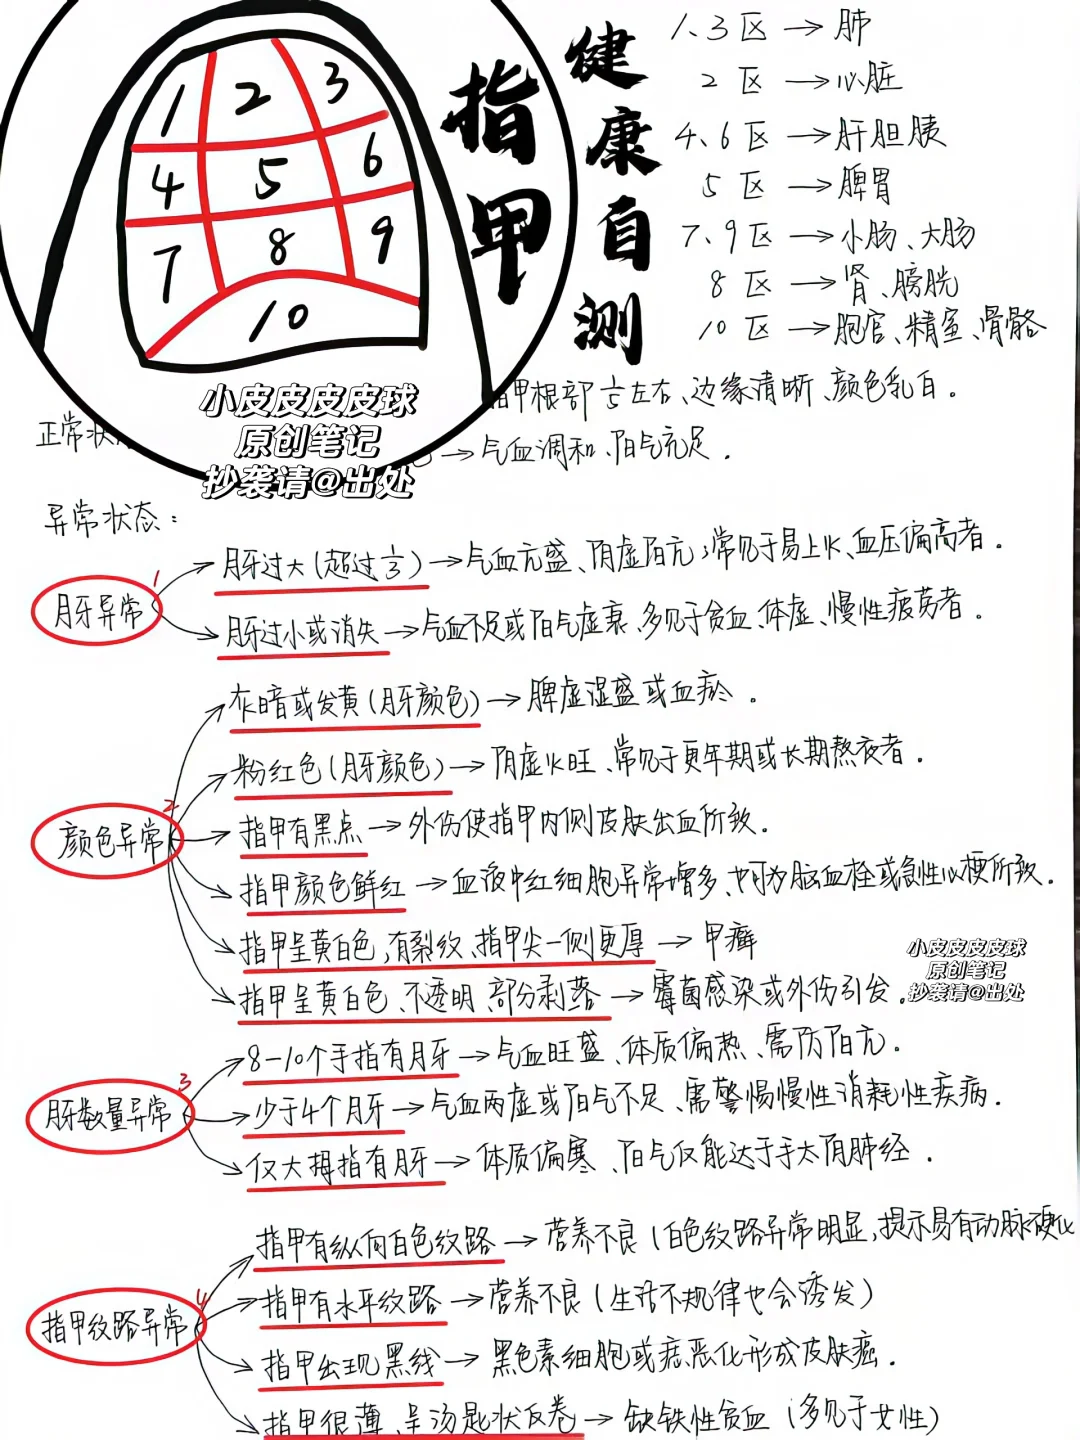 指甲
健康自测
1 2 3
4 5 6
7 8 9
10
1、3区→肺
2区→心脏
4、6区→肝胆胰
5区→脾胃
7、9区→小肠、大肠
8区→肾、膀胱
10区→胞宫、精室、骨骼
小皮皮皮皮球
原创笔记
抄袭请@出处
正常状
指甲根部1/5左右、边缘清晰、颜色乳白。
→气血调和、阳气充足.
异常状态:
1
月牙异常
月牙过大(超过1/3)→气血亢盛、阴虚阳亢;常见于易上火、血压偏高者.
月牙过小或消失→气血不足或阳气虚衰、多见于贫血、体虚、慢性疲劳者.
2
颜色异常
灰暗或发黄(月牙颜色)→脾虚湿盛或血瘀。
粉红色(月牙颜色)→阴虚火旺、常见于更年期或长期熬夜者.
指甲有黑点→外伤使指甲内侧皮肤出血所致.
指甲颜色鲜红→血液中红细胞异常增多、也可为脑血栓或急性心梗所致.
指甲呈黄白色,有裂纹、指甲尖一侧更厚→甲癣
指甲呈黄白色、不透明、部分剥落→霉菌感染或外伤引发.
小皮皮皮皮球
原创笔记
抄袭请@出处
3
月牙数量异常
8-10个手指有月牙→气血旺盛、体质偏热、需防阳亢.
少于4个月牙→气血两虚或阳气不足、需警惕慢性消耗性疾病.
仅大拇指有月牙→体质偏寒、阳气仅能达于手太阴肺经.
4
指甲纹路异常
指甲有纵向白色纹路→营养不良(白色纹路异常明显,提示易有动脉硬化
指甲有水平纹路→营养不良(生活不规律也会诱发)
指甲出现黑线→黑色素细胞或痣恶化形成皮肤癌.
指甲很薄、呈汤匙状反卷→缺铁性贫血(多见于女性)